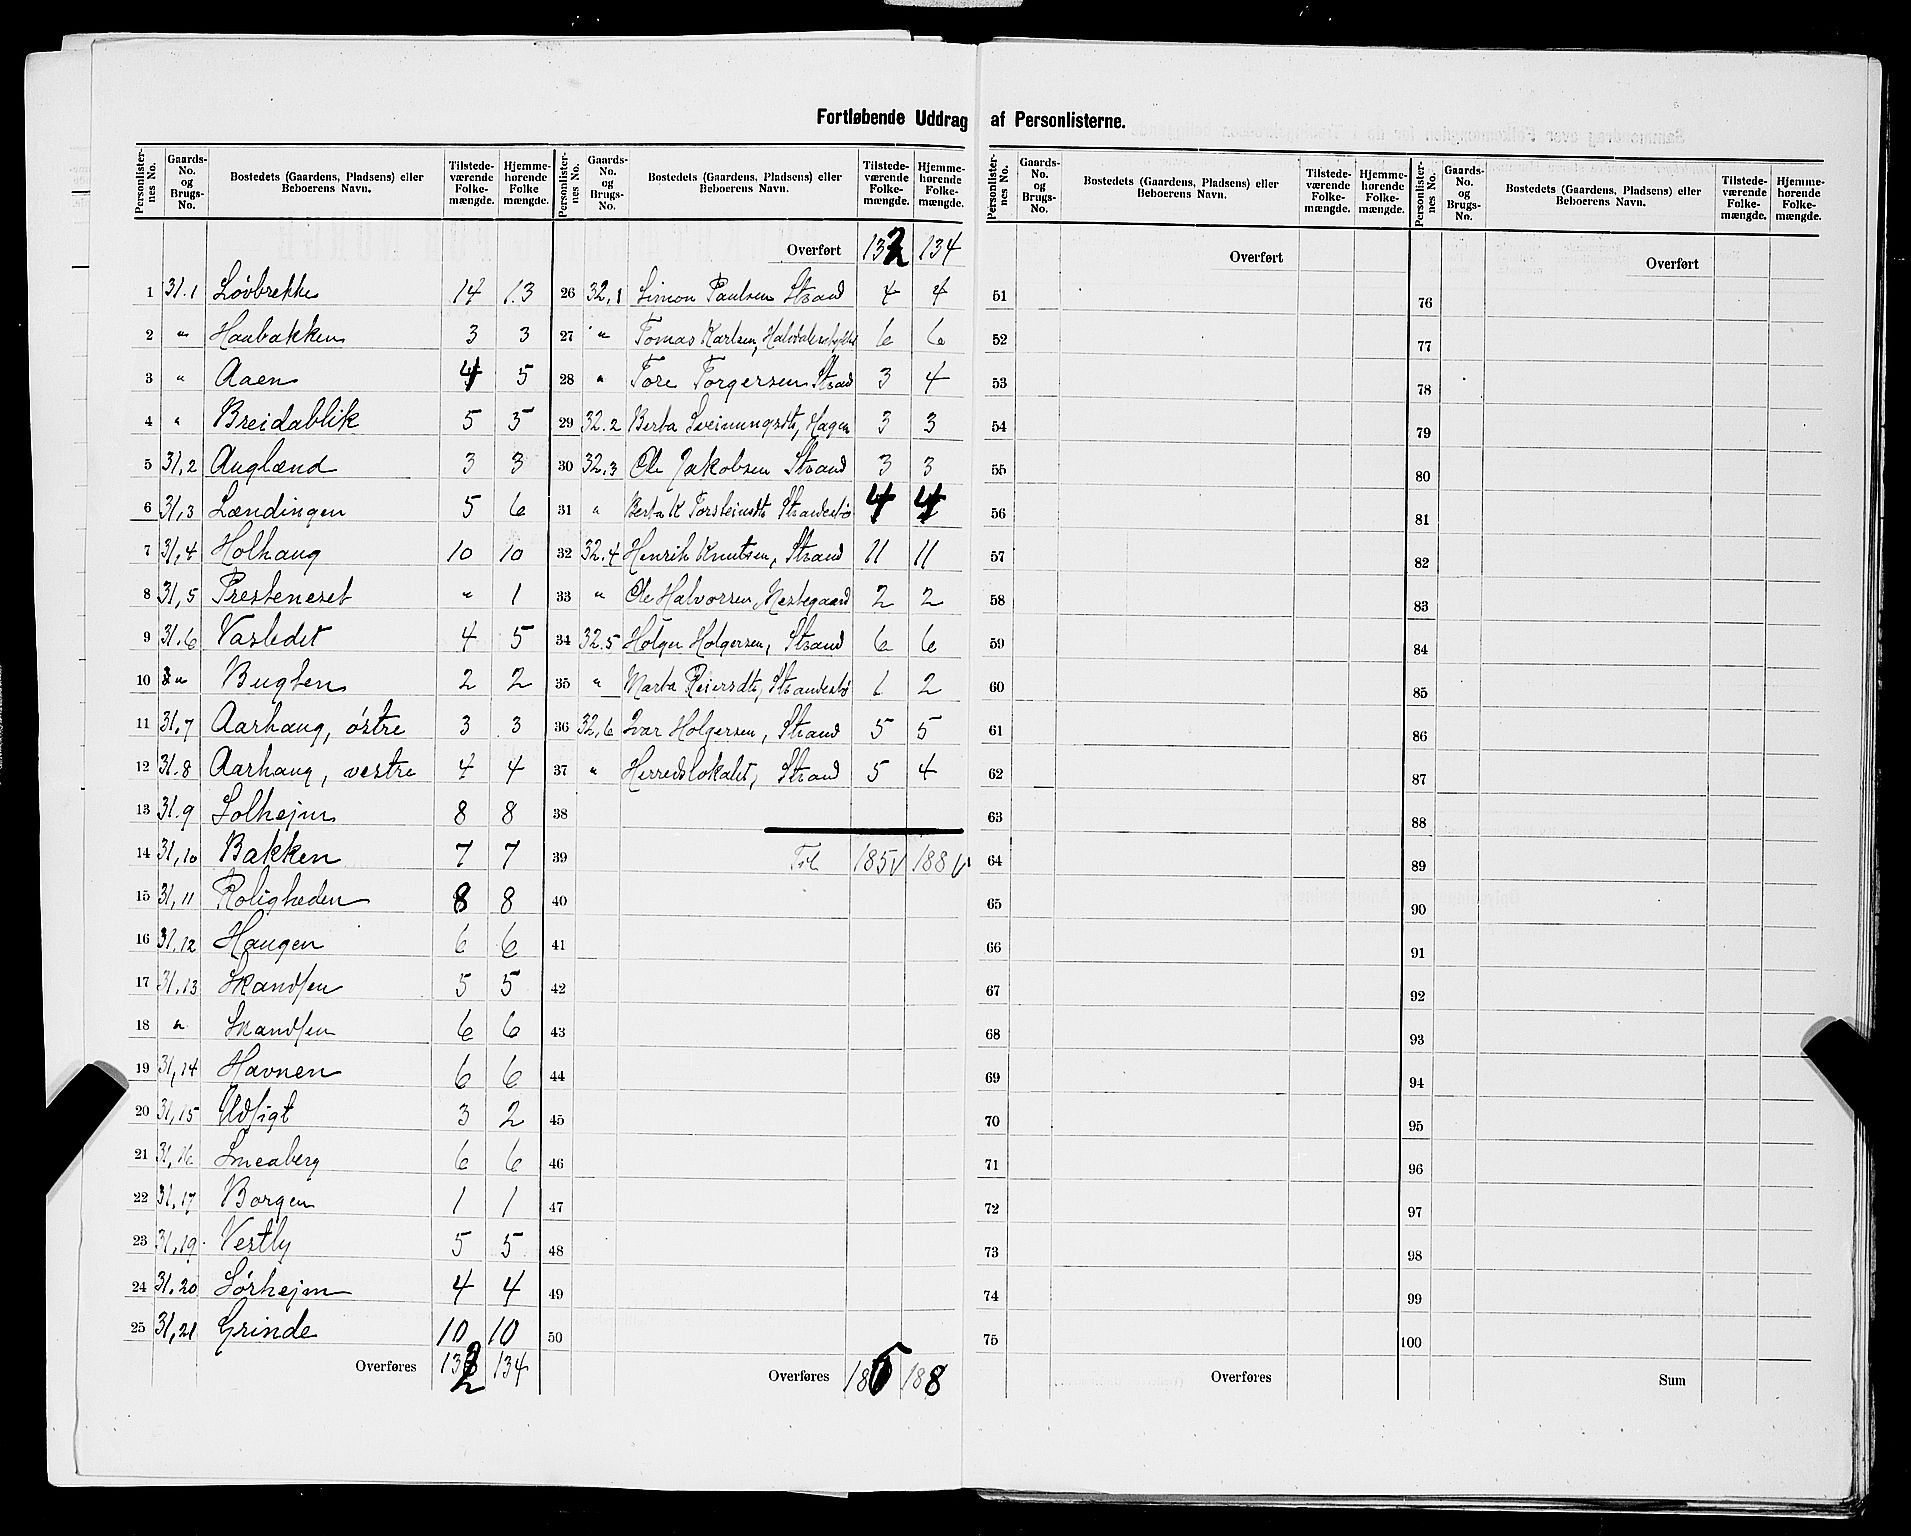 Fortløbende Uddrag af Personlisterne.
Personlisternes No. | Gaards-No. og Brugs-No. | Bostedets (Gaardens, Pladsens) eller Beboerens Navn. | Tilstedeværende Folkemængde. | Hjemmehørende Folkemængde.
1 31.1 Løvbrekke 14 13
2 " Haabakken 3 3
3 " Aaen 4 5
4 " Breidablik 5 5
5 31,2 Augland 3 3
6 31,3 Lændingen 5 6
7 31,4 Holhaug 10 10
8 31,5 Presteneset " 1
9 31.6 Vasledet 4 5
10 " Bugten 2 2
11 31.7 Aarhaug, østre 3 3
12 31.8 Aarhaug, vestre 4 4
13 31.9 Solhejm 8 8
14 31,10 Bakken 7 7
15 31,11 Roligheden 8 8
16 31.12 Haugen 6 6
17 31.13 Skandsen 5 5
18 " Skandsen 6 6
19 31,14 Havnen 6 6
20 31,15 Udsigt 3 2
21 31,16 Smeaberg 6 6
22 31.17 Borgen 1 1
23 31,19 Vestly 5 5
24 31.20 Sørhejm 4 4
25 31,21 Grinde 10 10
Overføres 132 134
Personlisternes No. | Gaards-No. og Brugs-No. | Bostedets (Gaardens, Pladsens) eller Beboerens Navn. | Tilstedeværende Folkemængde. | Hjemmehørende Folkemængde.
Overført 132 134
26 32,1 Simon Paulsen Strand 4 4
27 " Tomas Karlsen, 6 6
28 " Tore Torgersen Strand 3 4
29 32.2 Berta Sveinungsdt, Hagen 3 3
30 32.3 Ole Jakobsen Strand 3 3
31 " Berta K Torsteinsdt Strandestø 4 4
32 32.4 Henrik Knutsen, Strand 11 11
33 " Ole Halvorsen, Nestegaard 2 2
34 32.5 Holger Holgersen, Strand 6 6
35 " Marta Reiersdt, Strandestø 1 2
36 32,6 Ivar Holgersen, Strand 5 5
37 " Herredslokalet, Strand 5 4
38
39 Til 185 188
40
41
42
43
44
45
46
47
48
49
50
Overføres 185 188
Personlisternes No. | Gaards-No. og Brugs-No. | Bostedets (Gaardens, Pladsens) eller Beboerens Navn. | Tilstedeværende Folkemængde. | Hjemmehørende Folkemængde.
Overført
51
52
53
54
55
56
57
58
59
60
61
62
63
64
65
66
67
68
69
70
71
72
73
74
75
Overføres
Personlisternes No. | Gaards-No. og Brugs-No. | Bostedets (Gaardens, Pladsens) eller Beboerens Navn. | Tilstedeværende Folkemængde. | Hjemmehørende Folkemængde.
Overført
76
77
78
79
80
81
82
83
84
85
86
87
88
89
90
91
92
93
94
95
96
97
98
99
100
Sum